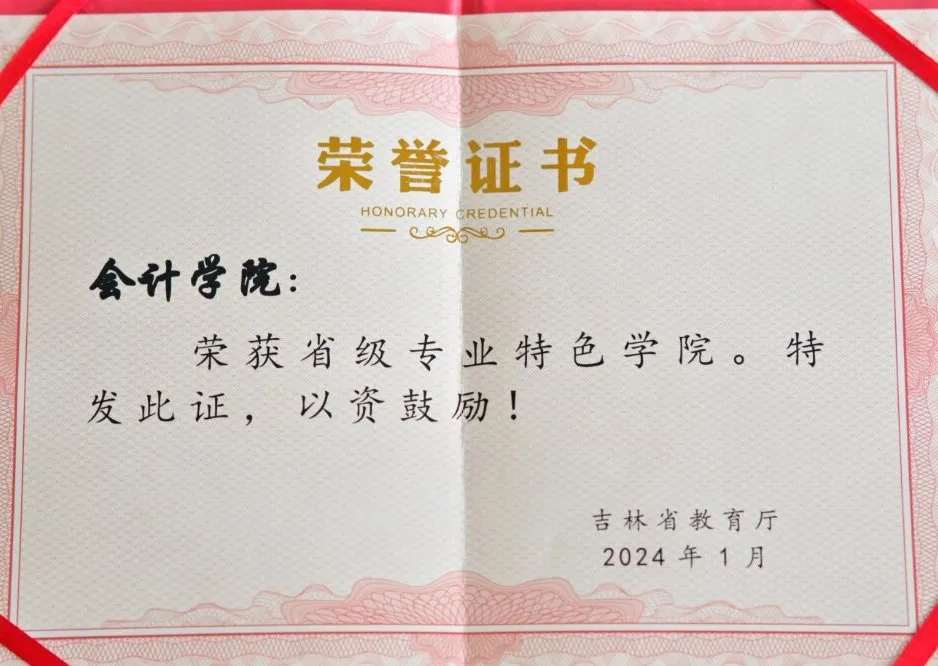 荣誉证书
HONORARY CREDENTIAL
会计学院:
荣获省级专业特色学院。特
发此证，以资鼓励！
吉林省教育厅
2024 年 1 月